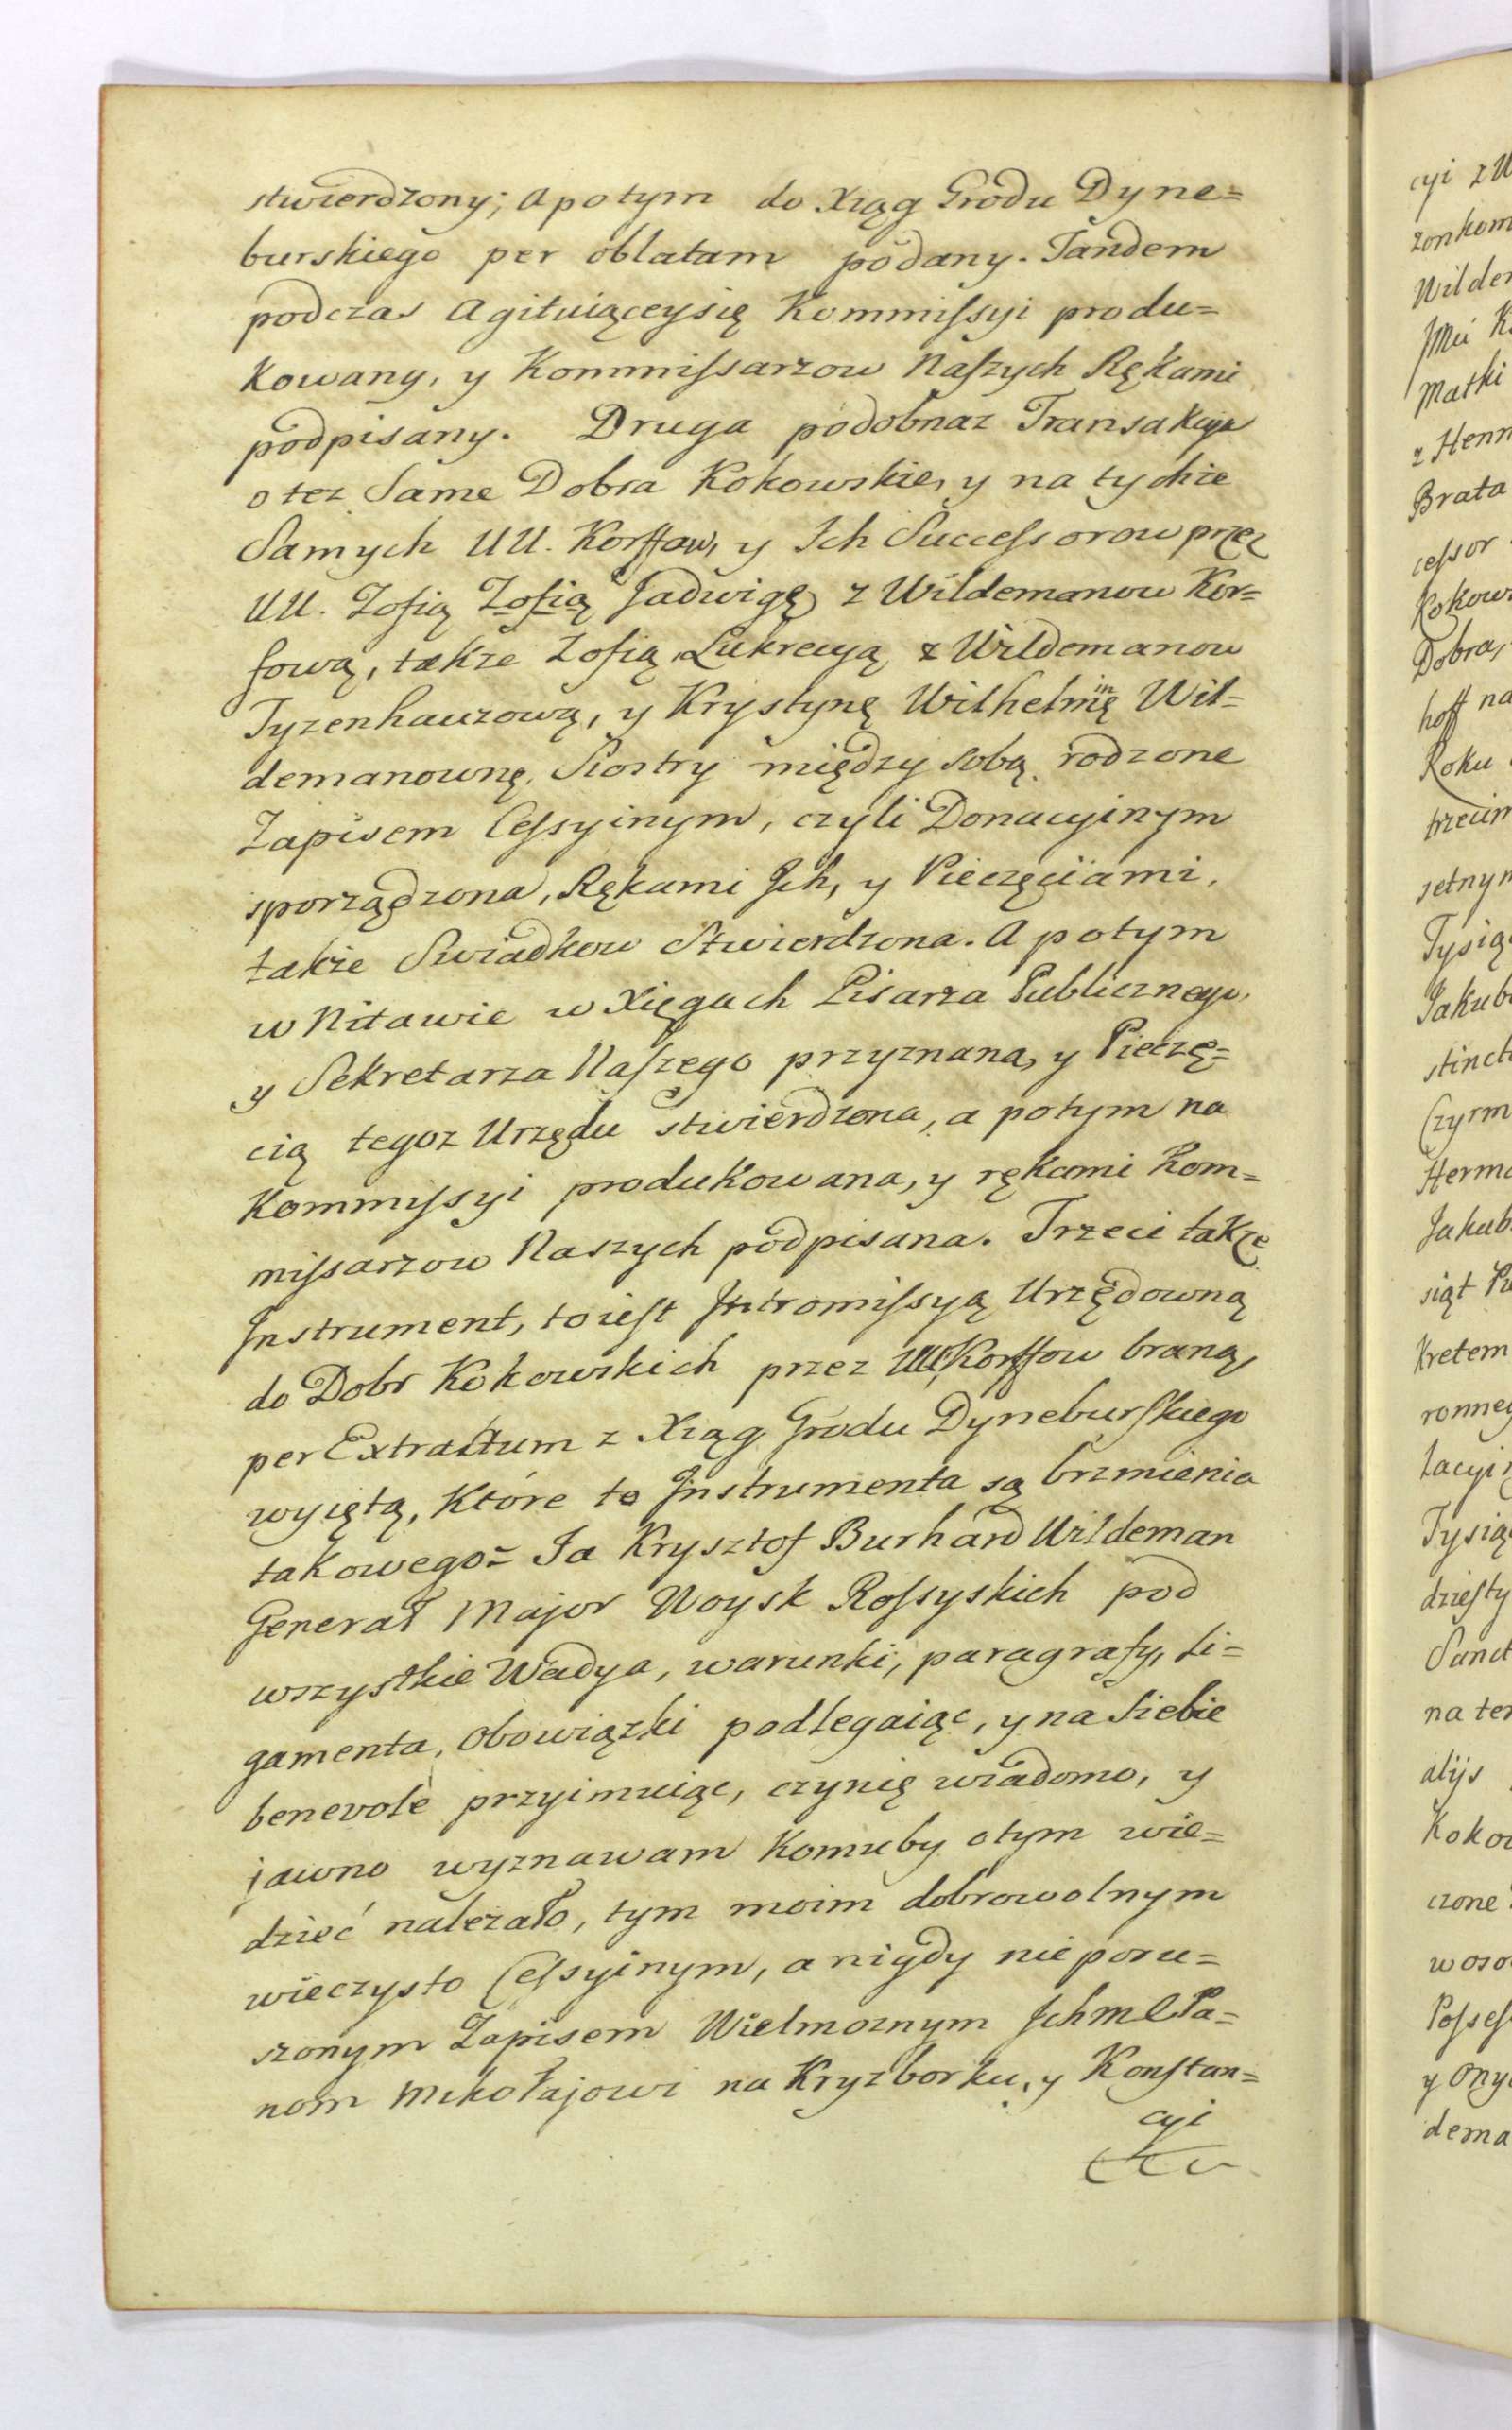 stwierdzony; a potym do Xiąg Grodu Dyne=
burskiego per oblatam podany. Tandem
podczas agituiąceysię Kommissyi produ=
kowany, y Kommissarzow Naszych Rękami
podpisany. Druga podobnaz Transakcya
o tez Same Dobra Kokowskie, y na tychze
Samych UU. Korffow, y Ich Successorow przez
UU. Zofią Zofią Jadwigę z Wildemanow Kor=
fową, także Zofią Lukrecyą z Wildemanow
Tyzenhauzową, y Krystynę Wilhelminę Wil=
demanownę, Siostry między sobą rodzone
Zapisem Cessyinym, czyli Donacyinym
sporządzona, Rękami Jch, y Pieczęciami,
takze Swiadkow Stwierdzona. A potym
w Mitawie w Xięgach Pisarza Publicznego,
y Sekretarza Naszego przyznana, y Pieczę=
cią tegoz Urzędu stwierdzona, a potym na
Kommissyi produkowana, y rękami Kom=
missarzow Naszych podpisana. Trzeci takze
Instrument, toiest Intromissyą Urzędowną
do Dobr Kokowskich przez UU Korffow braną,
per Extractum z Xiąg Grodu Dyneburskiego
wyiętą, Które to Instrumenta są brzmienia
takowego= Ja Krysztof Burhard Wildeman
Generał Major Woysk Rossyskich pod
wszystkie Wadya, warunki, paragrafy, li=
gamenta, obowiązki podlegaiąc, y na siebie
benevole przyimuiąc, czynię wiadomo, y
jawno wyznawam Komuby o tym wie=
dzieć nalezało, tym moim dobrowolnym
wieczysto Cessyinym, a nigdy nie poru=
szonym Zapisem Wielmoznym Jchmc Pa=
nom Mikołajowi na Kryzborku, y Konstan=
cyi
cyi z
zonkom
Wilde
JMci
Matki
z Henn
Brata
cessor
Kokow
Dobra,
hoff na
Roku
trzecim
setnym
Tysią
Jakub
stinct
Czyrm
Herma
Jakub
siąt
kretem
ronneg
tacyi
Tysią
dziesty
Sanct
na ter
alijs
Koko
czone
w oso
Posses
y ony
dema